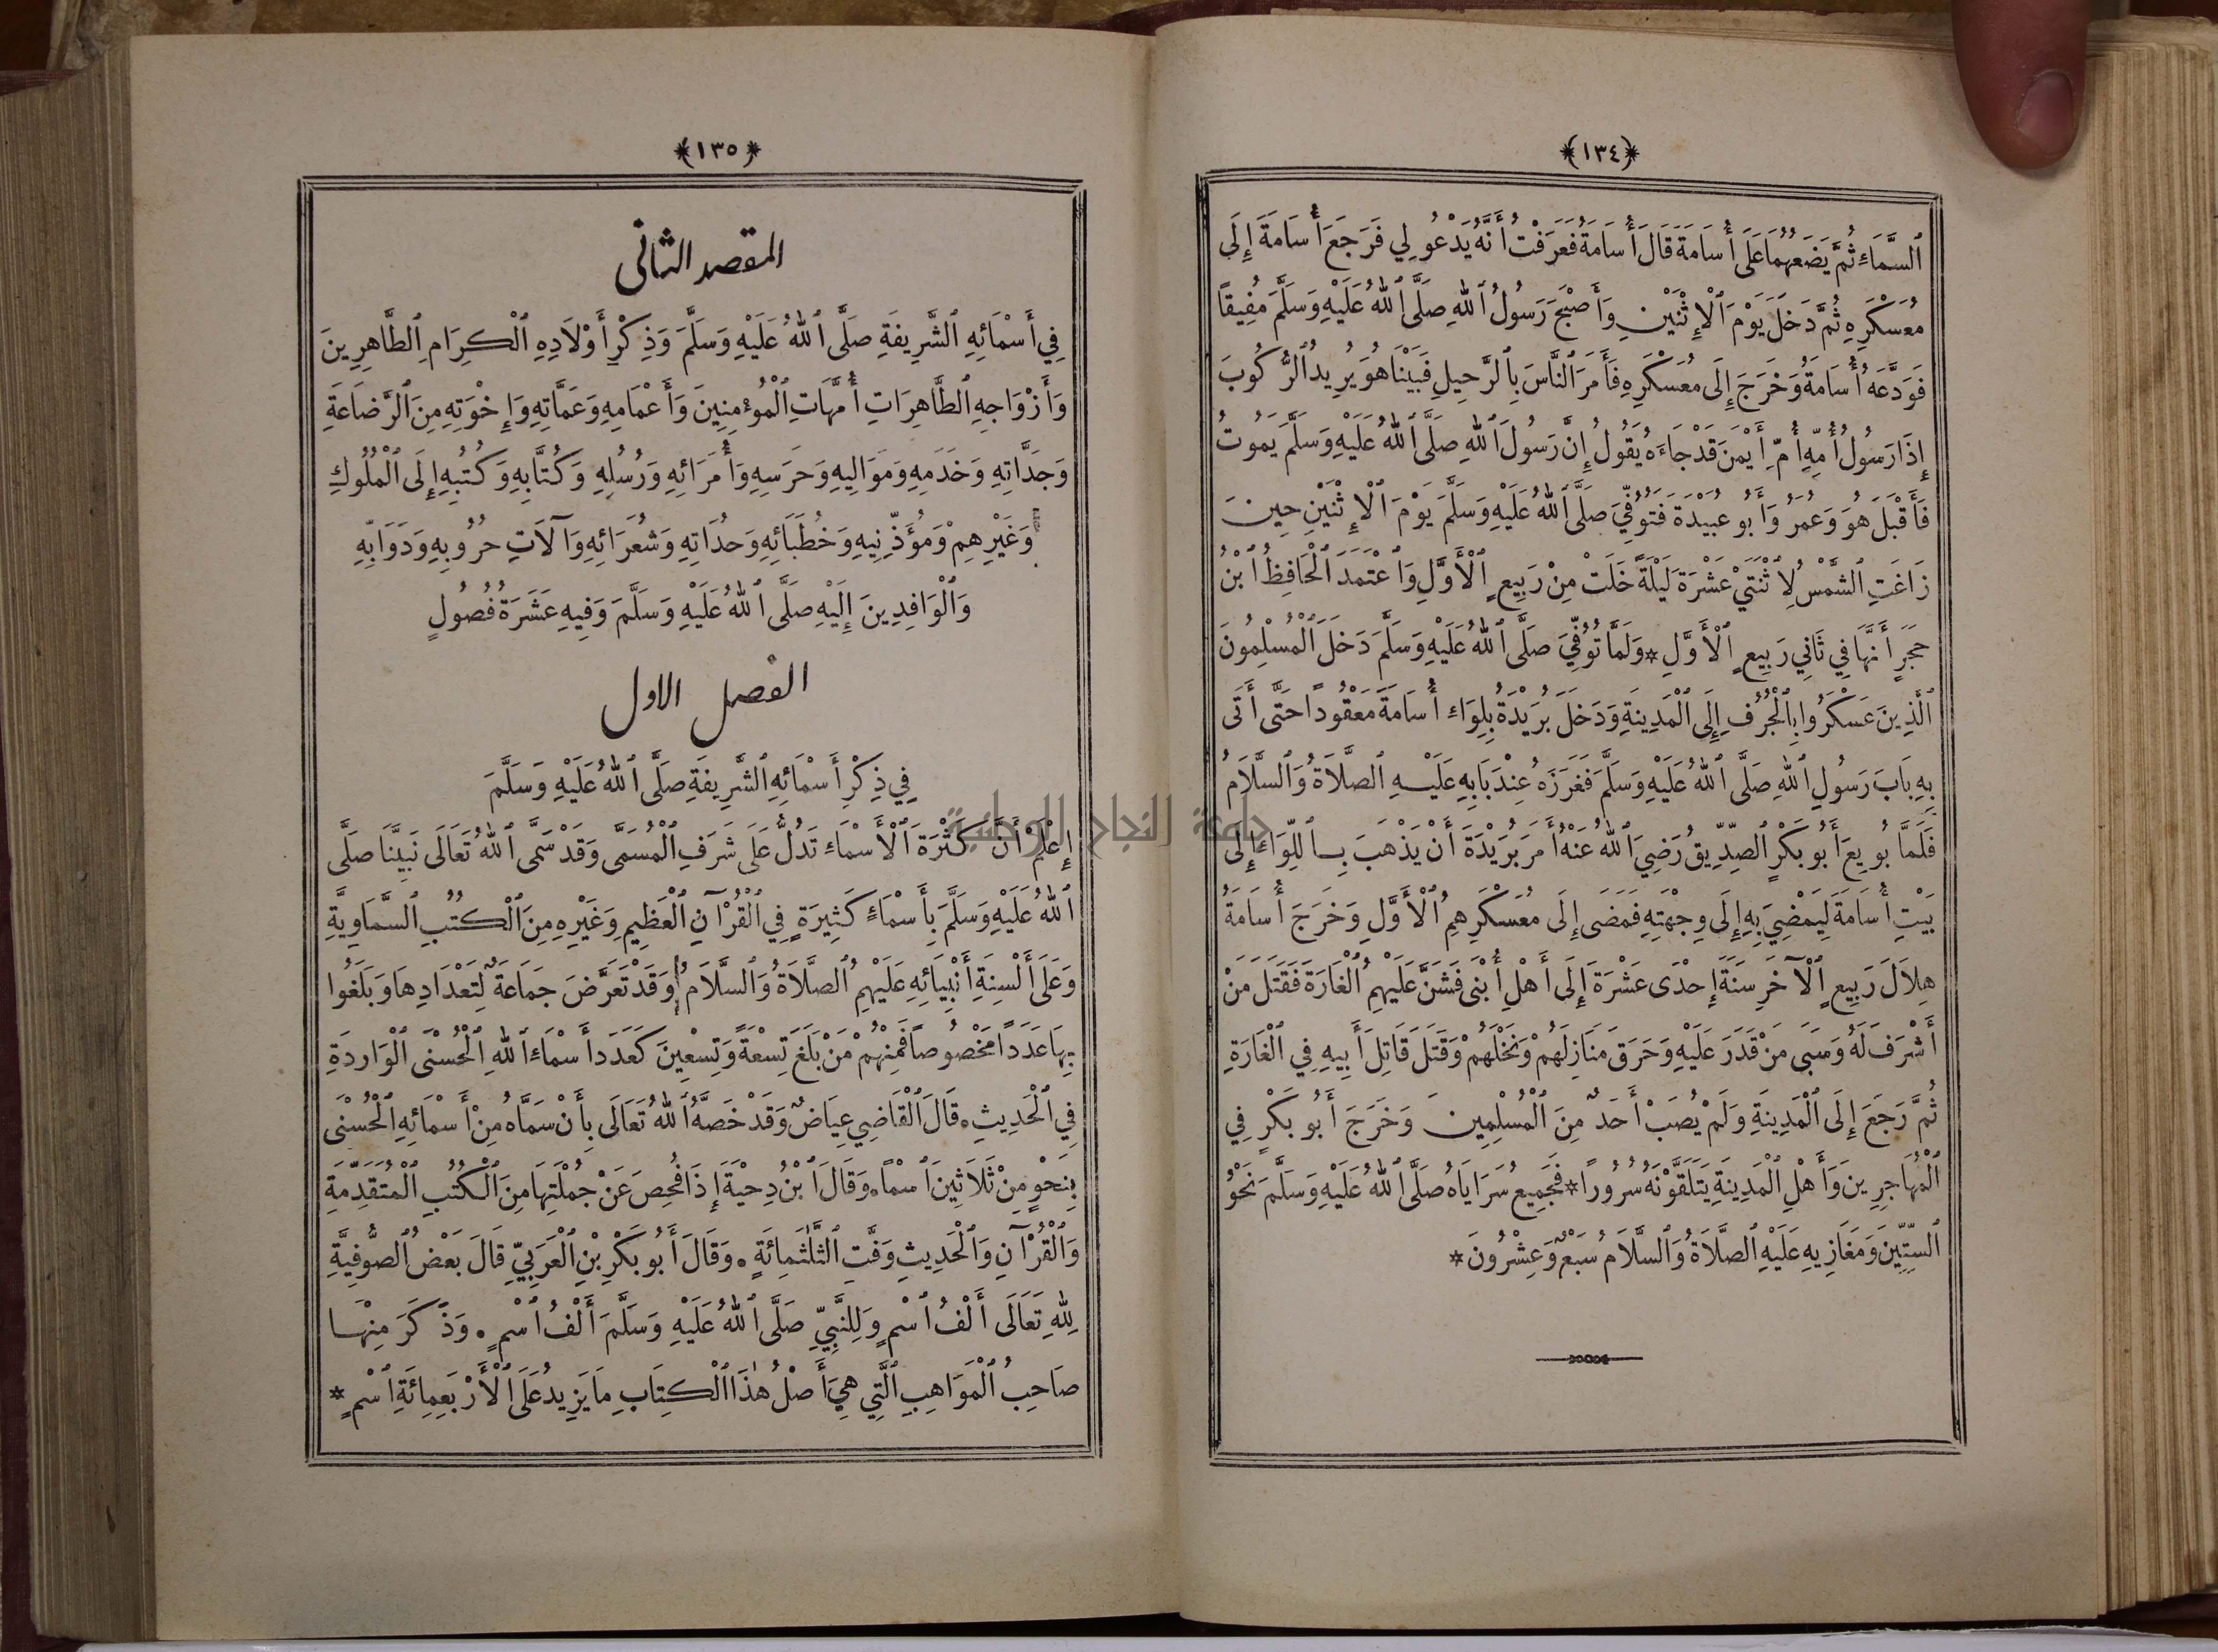 ﴿١٣٤﴾
ٱلسَّمَاءِ ثُمَّ يَضَعُهُمَا عَلَى أُسَامَةَ قَالَ أُسَامَةُ فَعَرَفْتُ أَنَّهُ يَدْعُو لِي فَرَجَعَ أُسَامَةَ إِلَى
مُعَسْكَرِهِ ثُمَّ دَخَلَ يَوْمَ ٱلْإِثْنَيْنِ وَأَصْبَحَ رَسُولُ ٱللهِ صَلَّى ٱللهُ عَلَيْهِ وَسَلَّمَ مُفِيقًا
فَوَدَّعَهُ أُسَامَةُ وَخَرَجَ إِلَى مُعَسْكَرِهِ فَأَمَرَ ٱلنَّاسَ بِٱلرَّحِيلِ فَبَيْنَا هُوَ يُرِيدُ ٱلرُّكُوبَ
إِذَا رَسُولُ أُمِّهِ أُمِّ أَيْمَنَ قَدْ جَاءَهُ يَقُولُ إِنَّ رَسُولَ ٱللهِ صَلَّى ٱللهُ عَلَيْهِ وَسَلَّمَ يَمُوتُ
فَأَقْبَلَ هُوَ وَعُمَرُ وَأَبُو عُبَيْدَةَ فَتُوُفِّيَ صَلَّى ٱللهُ عَلَيْهِ وَسَلَّمَ يَوْمَ ٱلْإِثْنَيْنِ حِينَ
زَاغَتِ ٱلشَّمْسُ لِٱثْنَتَيْ عَشْرَةَ لَيْلَةً خَلَتْ مِنْ رَبِيعٍ ٱلْأَوَّلِ وَٱعْتَمَدَ ٱلْحَافِظُ ٱبْنُ
حَجَرٍ أَنَّهَا فِي ثَانِي رَبِيعٍ ٱلْأَوَّلِ * وَلَمَّا تُوُفِّيَ صَلَّى ٱللهُ عَلَيْهِ وَسَلَّمَ دَخَلَ ٱلْمُسْلِمُونَ
ٱلَّذِينَ عَسْكَرُوا بِٱلْجُرُفِ إِلَى ٱلْمَدِينَةِ وَدَخَلَ بُرَيْدَةُ بِلِوَاءِ أُسَامَةَ مَعْقُودًا حَتَّى أَتَى
بِهِ بَابَ رَسُولِ ٱللهِ صَلَّى ٱللهُ عَلَيْهِ وَسَلَّمَ فَغَرَزَهُ عِنْدَ بَابِهِ عَلَيْهِ ٱلصَّلَاةُ وَٱلسَّلَامُ
فَلَمَّا بُويِعَ أَبُو بَكْرٍ ٱلصِّدِّيقُ رَضِيَ ٱللهُ عَنْهُ أَمَرَ بُرَيْدَةَ أَنْ يَذْهَبَ بِٱللِّوَاءِ إِلَى
بَيْتِ أُسَامَةَ لِيَمْضِيَ بِهِ إِلَى وِجْهَتِهِ فَمَضَى إِلَى مُعَسْكَرِهِمُ ٱلْأَوَّلِ وَخَرَجَ أُسَامَةُ
هِلَالَ رَبِيعٍ ٱلْآخَرِ سَنَةَ إِحْدَى عَشْرَةَ إِلَى أَهْلِ أُبْنَى فَشَنَّ عَلَيْهِمُ ٱلْغَارَةَ فَقَتَلَ مَنْ
أَشْرَفَ لَهُ وَسَبَى مَنْ قَدَرَ عَلَيْهِ وَحَرَقَ مَنَازِلَهُمْ وَنَخْلَهُمْ وَقَتَلَ قَاتِلَ أَبِيهِ فِي ٱلْغَارَةِ
ثُمَّ رَجَعَ إِلَى ٱلْمَدِينَةِ وَلَمْ يُصَبْ أَحَدٌ مِنَ ٱلْمُسْلِمِينَ وَخَرَجَ أَبُو بَكْرٍ فِي
ٱلْمُهَاجِرِينَ وَأَهْلِ ٱلْمَدِينَةِ يَتَلَقَّوْنَهُ سُرُورًا * فَجَمِيعُ سَرَايَاهُ صَلَّى ٱللهُ عَلَيْهِ وَسَلَّمَ نَحْوُ
ٱلسِّتِّينَ وَمَغَازِيهِ عَلَيْهِ ٱلصَّلَاةُ وَٱلسَّلَامُ سَبْعٌ وَعِشْرُونَ *
﴿١٣٥﴾
المقصد الثاني
فِي أَسْمَائِهِ ٱلشَّرِيفَةِ صَلَّى ٱللهُ عَلَيْهِ وَسَلَّمَ وَذِكْرِ أَوْلَادِهِ ٱلْكِرَامِ ٱلطَّاهِرِينَ
وَأَزْوَاجِهِ ٱلطَّاهِرَاتِ أُمَّهَاتِ ٱلْمُؤْمِنِينَ وَأَعْمَامِهِ وَعَمَّاتِهِ وَإِخْوَتِهِ مِنَ ٱلرَّضَاعَةِ
وَجَدَّاتِهِ وَخَدَمِهِ وَمَوَالِيهِ وَحَرَسِهِ وَأُمَرَائِهِ وَرُسُلِهِ وَكُتَّابِهِ وَكُتُبِهِ إِلَى ٱلْمُلُوكِ
وَغَيْرِهِمْ وَمُؤَذِّنِيهِ وَخُطَبَائِهِ وَحُدَاتِهِ وَشُعَرَائِهِ وَآلَاتِ حُرُوبِهِ وَدَوَابِّهِ
وَٱلْوَافِدِينَ إِلَيْهِ صَلَّى ٱللهُ عَلَيْهِ وَسَلَّمَ وَفِيهِ عَشَرَةُ فُصُولٍ
الفصل الاول
فِي ذِكْرِ أَسْمَائِهِ ٱلشَّرِيفَةِ صَلَّى ٱللهُ عَلَيْهِ وَسَلَّمَ
إِعْلَمْ أَنَّ كَثْرَةَ ٱلْأَسْمَاءِ تَدُلُّ عَلَى شَرَفِ ٱلْمُسَمَّى وَقَدْ سَمَّى ٱللهُ تَعَالَى نَبِيَّنَا صَلَّى
ٱللهُ عَلَيْهِ وَسَلَّمَ بِأَسْمَاءٍ كَثِيرَةٍ فِي ٱلْقُرْآنِ ٱلْعَظِيمِ وَغَيْرِهِ مِنَ ٱلْكُتُبِ ٱلسَّمَاوِيَّةِ
وَعَلَى أَلْسِنَةِ أَنْبِيَائِهِ عَلَيْهِمُ ٱلصَّلَاةُ وَٱلسَّلَامُ وَقَدْ تَعَرَّضَ جَمَاعَةٌ لِتَعْدَادِهَا وَبَلَغُوا
بِهَا عَدَدًا مَخْصُوصًا فَمِنْهُمْ مَنْ بَلَغَ تِسْعَةً وَتِسْعِينَ كَعَدَدِ أَسْمَاءِ ٱللهِ ٱلْحُسْنَى ٱلْوَارِدَةِ
فِي ٱلْحَدِيثِ . قَالَ ٱلْقَاضِي عِيَاضٌ وَقَدْ خَصَّهُ ٱللهُ تَعَالَى بِأَنْ سَمَّاهُ مِنْ أَسْمَائِهِ ٱلْحُسْنَى
بِنَحْوٍ مِنْ ثَلَاثِينَ ٱسْمًا . وَقَالَ ٱبْنُ دِحْيَةَ إِذَا فُحِصَ عَنْ جُمْلَتِهَا مِنَ ٱلْكُتُبِ ٱلْمُتَقَدِّمَةِ
وَٱلْقُرْآنِ وَٱلْحَدِيثِ وَفَّتِ ٱلثَّلَثَمِائَةٍ . وَقَالَ أَبُو بَكْرِ بْنِ ٱلْعَرَبِيِّ قَالَ بَعْضُ ٱلصُّوفِيَّةِ
لِلهِ تَعَالَى أَلْفُ ٱسْمٍ وَلِلنَّبِيِّ صَلَّى ٱللهُ عَلَيْهِ وَسَلَّمَ أَلْفُ ٱسْمٍ . وَذَكَرَ مِنْهَا
صَاحِبُ ٱلْمَوَاهِبِ ٱلَّتِي هِيَ أَصْلُ هٰذَا ٱلْكِتَابِ مَا يَزِيدُ عَلَى ٱلْأَرْبَعِمِائَةِ ٱسْمٍ *
جامعة النجاح الوطنية